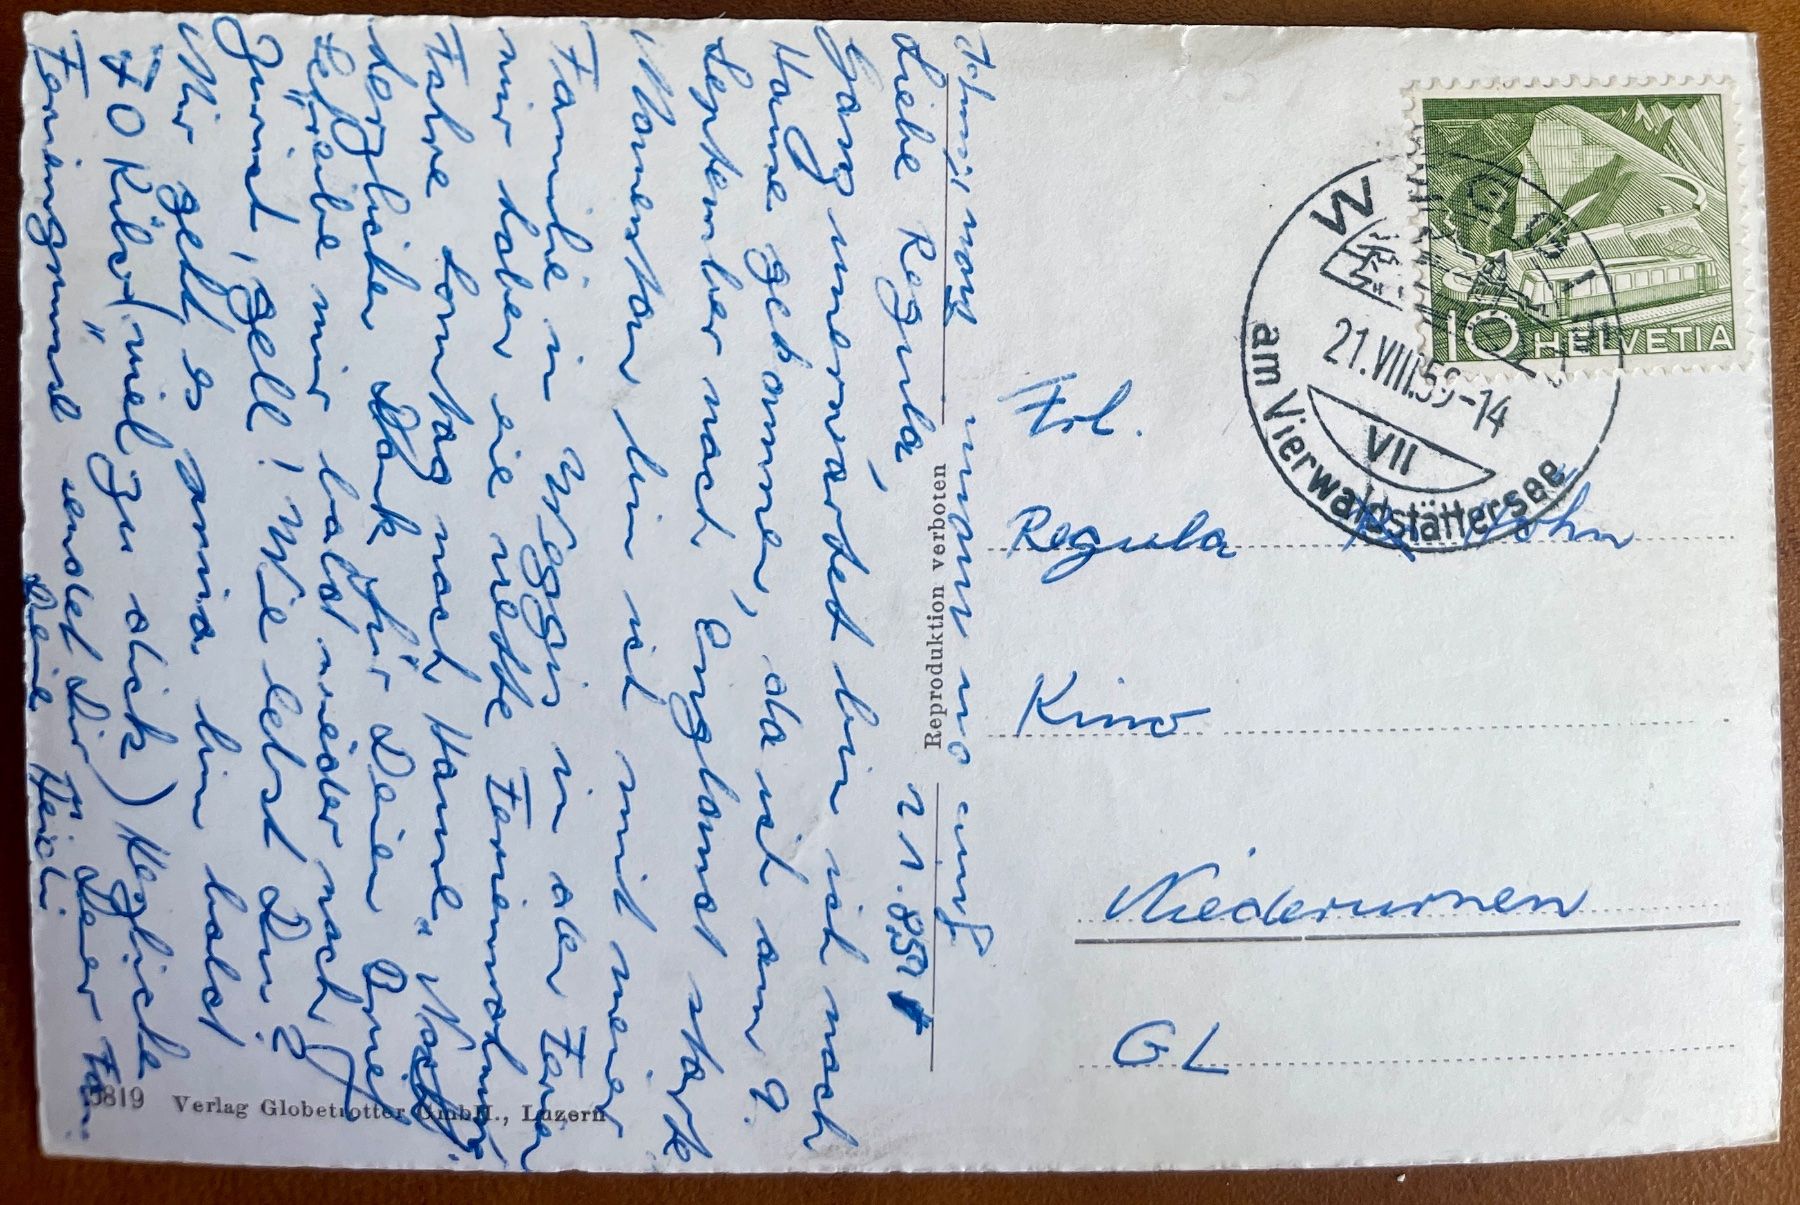 Liebe Regula, 21.8.59
Ganz unerwartet bin ich nach
Hause gekommen, da ich am 9.
September nach England starte
Momentan bin ich mit meiner
Familie in Weggis in den Ferien
wir haben eine nette Ferienwohnung
Fahre Sonntag nach Hause. Noch
herzlichen Dank für Deinen Brief
Schreibe mir bald wieder nach
Zürich, gell! Wie lebst Du?
Mir geht es prima bin bald
70 Kilo (viel zu dick) Herzliche
Feriengrüsse sendet Dir, Deiner Fam.
Deine Heidi
Reproduktion verboten
Verlag Globetrotter GmbH., Luzern
10 HELVETIA
WEGGIS
21.VIII.59-14
VII
am Vierwaldstättersee
Frl.
Regula
Kino
Niederurnen
GL